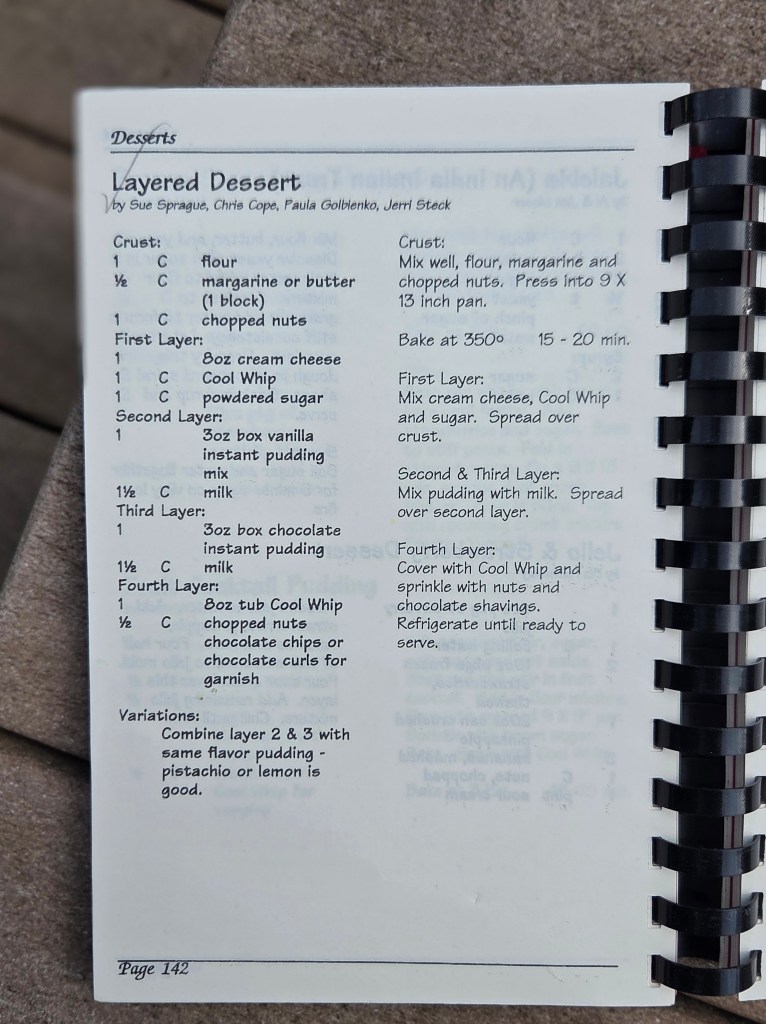 Desserts
Layered Dessert
by Sue Sprague, Chris Cope, Paula Golbienko, Jerri Steck
Crust:
1 C flour
½ C margarine or butter
(1 block)
1 C chopped nuts
First Layer:
1 8oz cream cheese
1 C Cool Whip
1 C powdered sugar
Second Layer:
1 3oz box vanilla
instant pudding
mix
1½ C milk
Third Layer:
1 3oz box chocolate
instant pudding
1½ C milk
Fourth Layer:
1 8oz tub Cool Whip
½ C chopped nuts
chocolate chips or
chocolate curls for
garnish
Variations:
Combine layer 2 & 3 with
same flavor pudding -
pistachio or lemon is
good.
Crust:
Mix well, flour, margarine and
chopped nuts. Press into 9 X
13 inch pan.
Bake at 350º 15 - 20 min.
First Layer:
Mix cream cheese, Cool Whip
and sugar. Spread over
crust.
Second & Third Layer:
Mix pudding with milk. Spread
over second layer.
Fourth Layer:
Cover with Cool Whip and
sprinkle with nuts and
chocolate shavings.
Refrigerate until ready to
serve.
Page 142